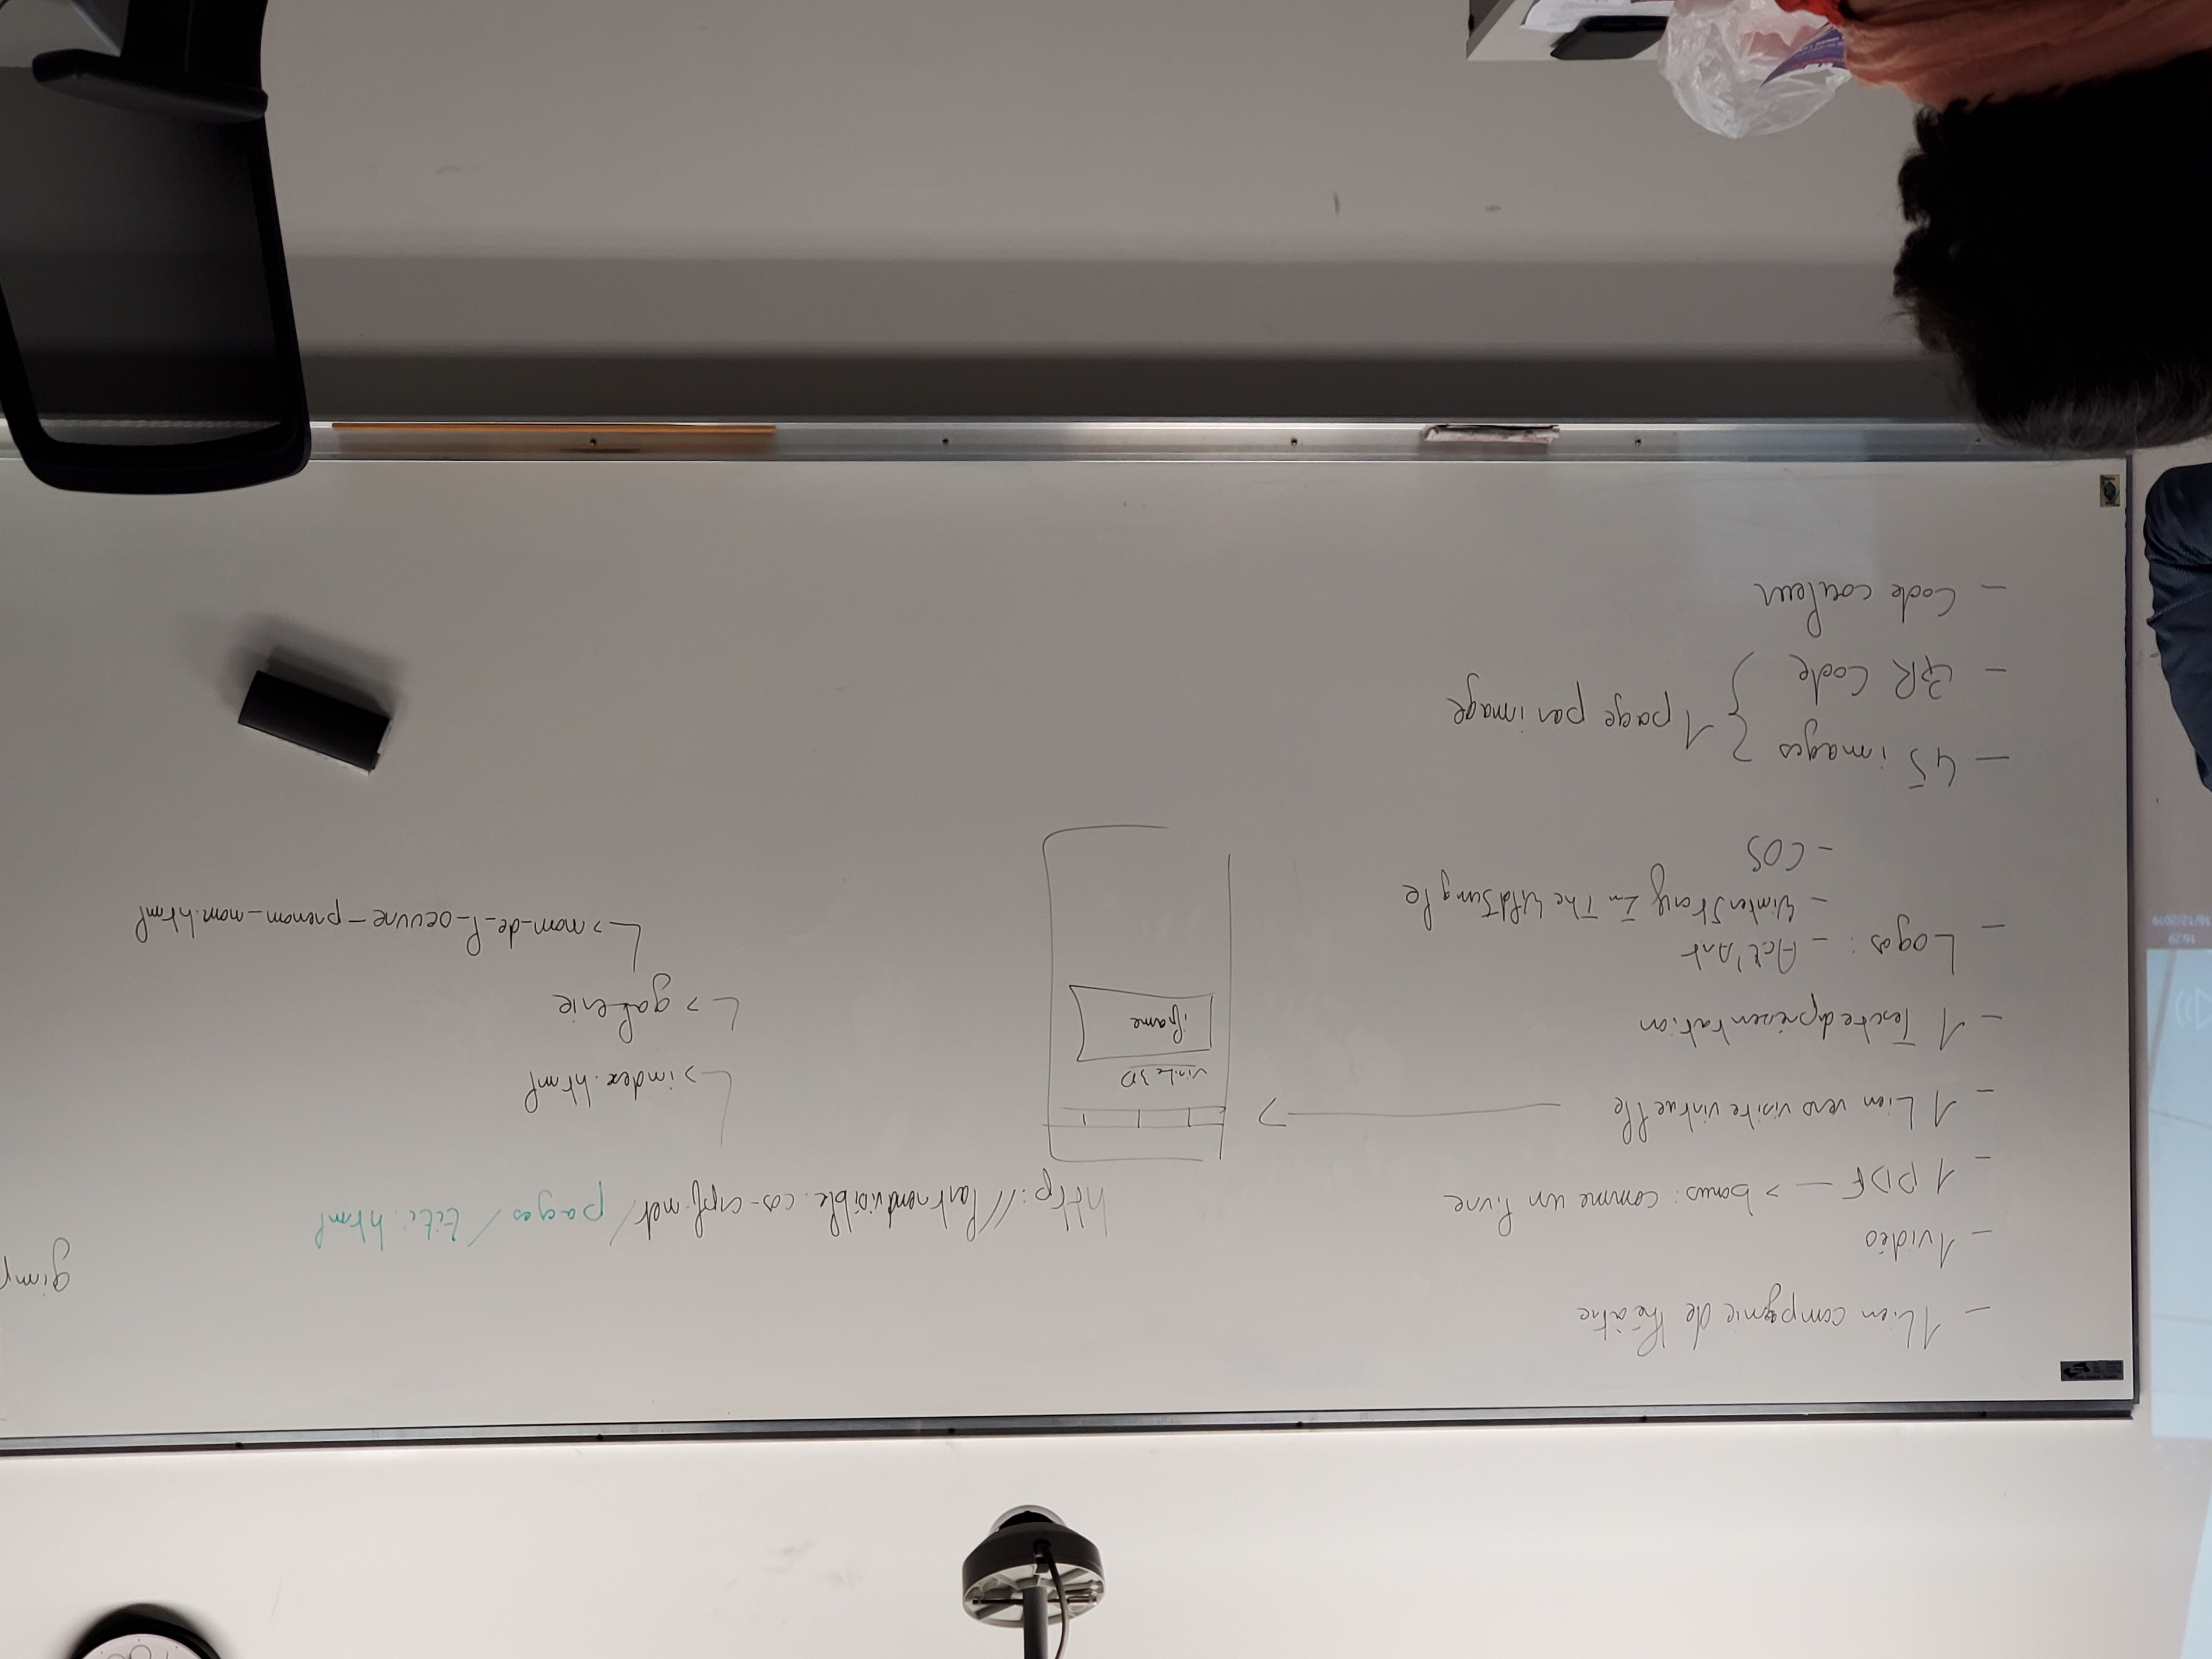 - 1 Lien compagnie de théâtre
- 1 vidéo
- 1 PDF -> bonus: comme un livre
- 1 Lien vers visite virtuelle ->
- 1 Texte de présentation
- Logos: - Act'Art
- Winter Story In The Wild Jungle
- COS
- 45 images
- QR Code
} 1 page par image
- Code couleur
visite 3D
iframe
http://lartrendvisible.cos-crpf.net/pages/titi.html
↳ index.html
↳ galerie
↳ nom_de_l_oeuvre-prenom_nom.html
16:29
16/12/2019